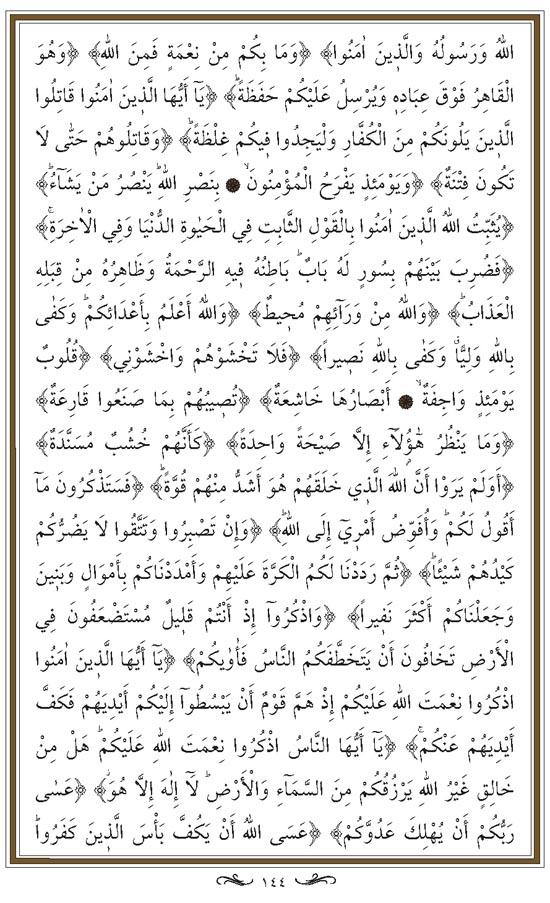 اللّٰهُ وَرَسُولُهُ وَالَّذٖينَ اٰمَنُوا﴾ ﴿وَمَا بِكُمْ مِنْ نِعْمَةٍ فَمِنَ اللّٰهِ﴾ ﴿وَهُوَ
الْقَاهِرُ فَوْقَ عِبَادِهٖ وَيُرْسِلُ عَلَيْكُمْ حَفَظَةًۜ﴾ ﴿يَٓا أَيُّهَا الَّذٖينَ اٰمَنُوا قَاتِلُوا
الَّذٖينَ يَلُونَكُمْ مِنَ الْكُفَّارِ وَلْيَجِدُوا فٖيكُمْ غِلْظَةًۜ﴾ ﴿وَقَاتِلُوهُمْ حَتّٰى لَا
تَكُونَ فِتْنَةٌ﴾ ﴿وَيَوْمَئِذٍ يَفْرَحُ الْمُؤْمِنُونَۙ ۝ بِنَصْرِ اللّٰهِۜ يَنْصُرُ مَنْ يَشَٓاءُۜ﴾
﴿يُثَبِّتُ اللّٰهُ الَّذٖينَ اٰمَنُوا بِالْقَوْلِ الثَّابِتِ فِي الْحَيٰوةِ الدُّنْيَا وَفِي الْاٰخِرَةِۚ﴾
﴿فَضُرِبَ بَيْنَهُمْ بِسُورٍ لَهُ بَابٌۜ بَاطِنُهُ فٖيهِ الرَّحْمَةُ وَظَاهِرُهُ مِنْ قِبَلِهِ
الْعَذَابُۜ﴾ ﴿وَاللّٰهُ مِنْ وَرَٓائِهِمْ مُحٖيطٌۚ﴾ ﴿وَاللّٰهُ أَعْلَمُ بِأَعْدَائِكُمْۜ وَكَفٰى
بِاللّٰهِ وَلِيًّاۗ وَكَفٰى بِاللّٰهِ نَصٖيراً﴾ ﴿فَلَا تَخْشَوْهُمْ وَاخْشَوْنٖي﴾ ﴿قُلُوبٌ
يَوْمَئِذٍ وَاجِفَةٌۙ ۝ أَبْصَارُهَا خَاشِعَةٌ﴾ ﴿تُصٖيبُهُمْ بِمَا صَنَعُوا قَارِعَةٌ﴾
﴿وَمَا يَنْظُرُ هٰٓؤُلَٓاءِ إِلَّا صَيْحَةً وَاحِدَةً﴾ ﴿كَأَنَّهُمْ خُشُبٌ مُسَنَّدَةٌۜ﴾
﴿أَوَلَمْ يَرَوْا أَنَّ اللّٰهَ الَّذٖي خَلَقَهُمْ هُوَ أَشَدُّ مِنْهُمْ قُوَّةًۜ﴾ ﴿فَسَتَذْكُرُونَ مَٓا
أَقُولُ لَكُمْۜ وَأُفَوِّضُ أَمْرٖٓي إِلَى اللّٰهِۜ﴾ ﴿وَإِنْ تَصْبِرُوا وَتَتَّقُوا لَا يَضُرُّكُمْ
كَيْدُهُمْ شَيْئاًۜ﴾ ﴿ثُمَّ رَدَدْنَا لَكُمُ الْكَرَّةَ عَلَيْهِمْ وَأَمْدَدْنَاكُمْ بِأَمْوَالٍ وَبَنٖينَ
وَجَعَلْنَاكُمْ أَكْثَرَ نَفٖيراً﴾ ﴿وَاذْكُرُٓوا إِذْ أَنْتُمْ قَلٖيلٌ مُسْتَضْعَفُونَ فِي
الْأَرْضِ تَخَافُونَ أَنْ يَتَخَطَّفَكُمُ النَّاسُ فَأٰوٰيكُمْ﴾ ﴿يَٓا أَيُّهَا الَّذٖينَ اٰمَنُوا
اذْكُرُوا نِعْمَتَ اللّٰهِ عَلَيْكُمْ إِذْ هَمَّ قَوْمٌ أَنْ يَبْسُطُٓوا إِلَيْكُمْ أَيْدِيَهُمْ فَكَفَّ
أَيْدِيَهُمْ عَنْكُمْۚ﴾ ﴿يَٓا أَيُّهَا النَّاسُ اذْكُرُوا نِعْمَتَ اللّٰهِ عَلَيْكُمْۜ هَلْ مِنْ
خَالِقٍ غَيْرُ اللّٰهِ يَرْزُقُكُمْ مِنَ السَّمَٓاءِ وَالْأَرْضِۜ لَٓا إِلٰهَ إِلَّا هُوَۘ﴾ ﴿عَسٰى
رَبُّكُمْ أَنْ يُهْلِكَ عَدُوَّكُمْ﴾ ﴿عَسَى اللّٰهُ أَنْ يَكُفَّ بَأْسَ الَّذٖينَ كَفَرُواۜ
١٤٤